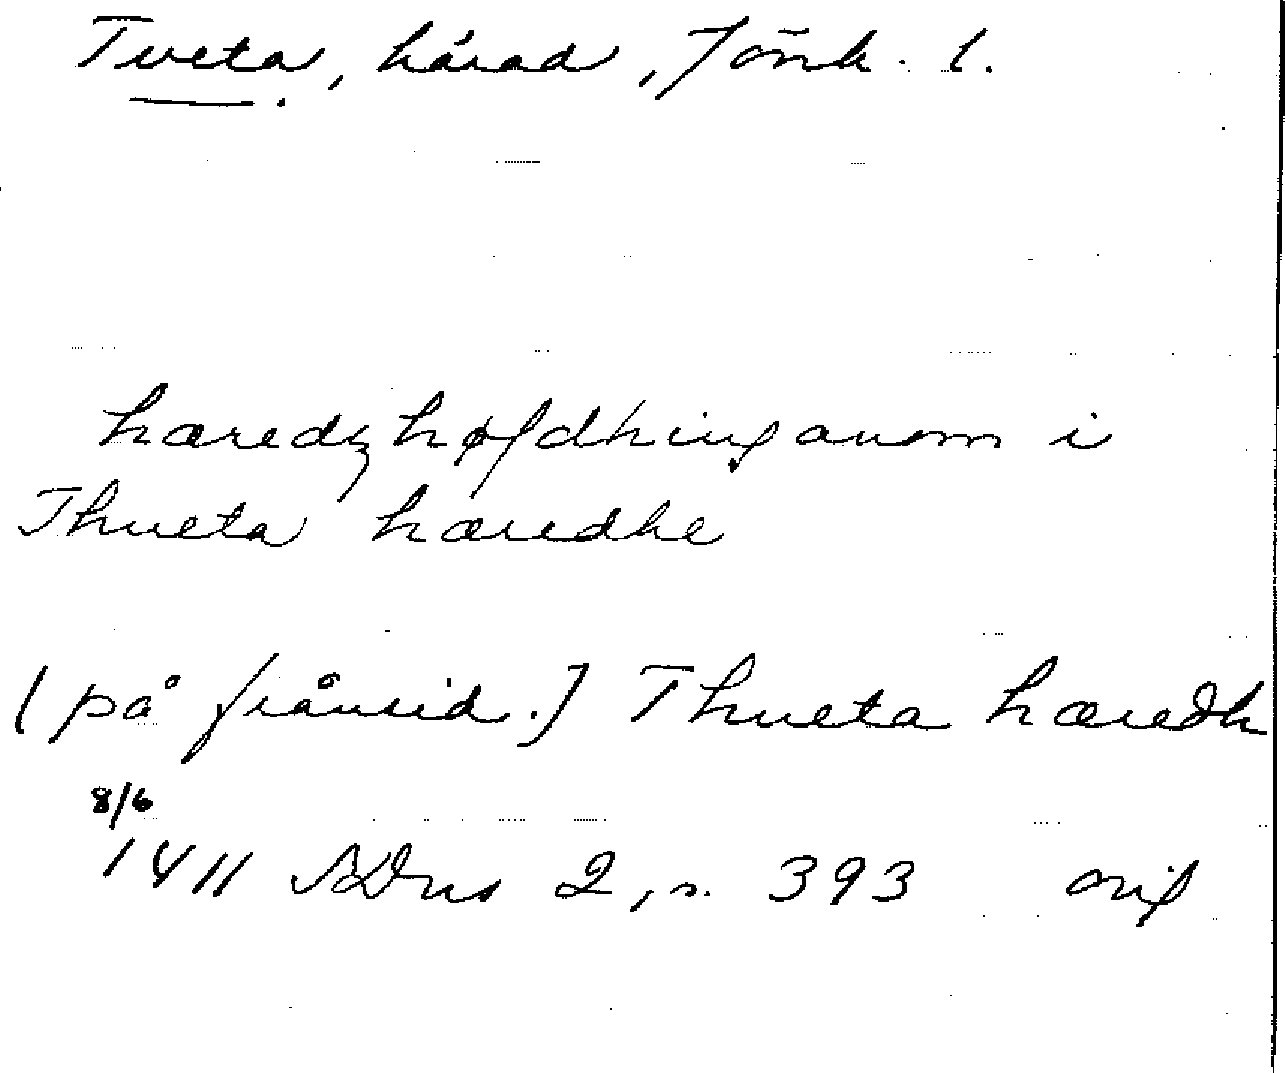 Tveta, härad, Jönk. l.
hæredzhøfdhinganom i
Thueta hæredhe
[på frånsid.] Thueta hæredh
8/6
1411 SDns 2, s. 393 orig